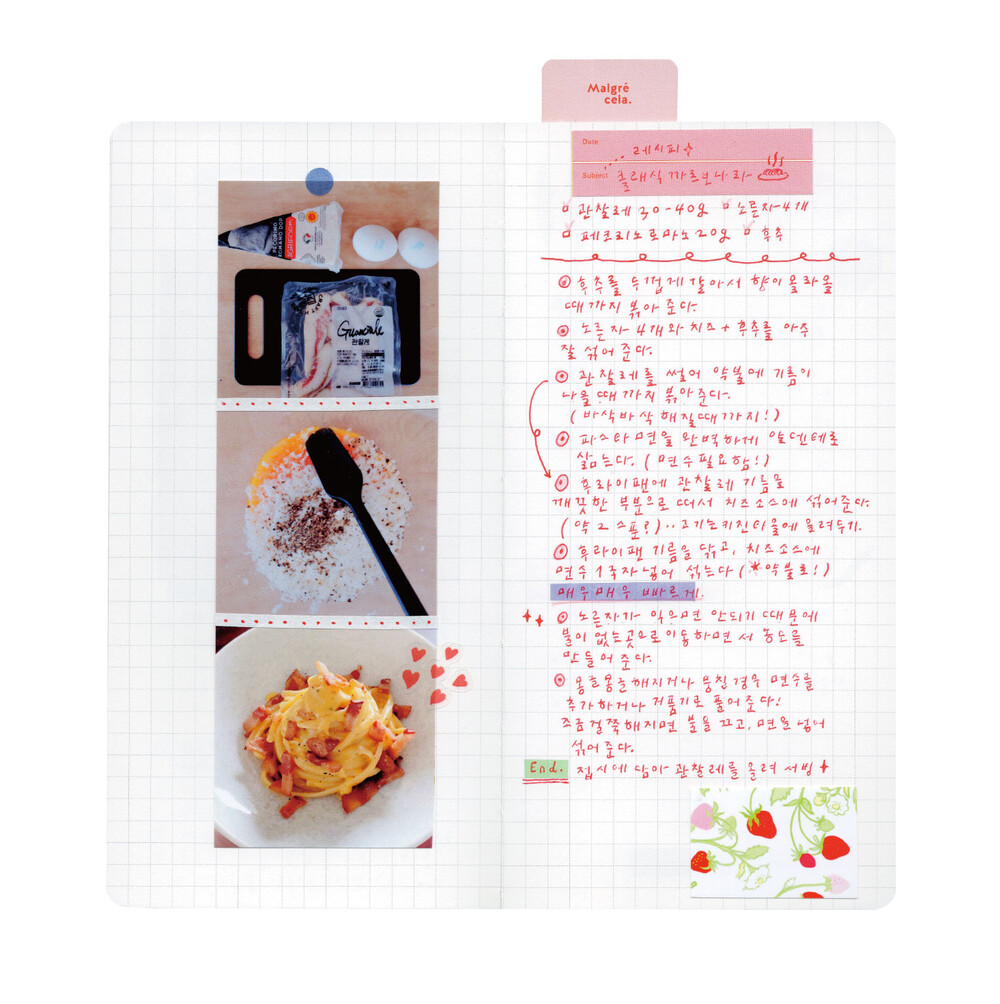 Malgré
cela.
Date
레시피
Subject 클래식 까르보나라
관찰레 30-40g 노른자 4개
페코리노로마노 20g 후추
후추를 두껍게 갈아서 향이 올라올
때까지 볶아 준다.
노른자 4개와 치즈 + 후추를 아주
잘 섞어 준다.
관찰레를 썰어 약불에 기름이
나올 때까지 볶아준다.
(바삭바삭 해질때까지!)
파스타면을 완벽하게 알덴테로
삶는다. (면수필요함!)
후라이팬에 관찰레 기름을
깨끗한 부분으로 떠서 치즈소스에 섞어준다.
(약 2스푼?)..고기는키친타올에 올려두기.
후라이팬 기름을 닦고, 치즈소스에
면수1국자넣어 섞는다 (*약불로!)
매우매우 빠르게.
노른자가 익으면 안되기 때문에
불이 없는곳으로 이동하면서 농도를
만들어 준다.
몽글몽글해지거나 뭉친경우 면수를
추가하거나 거품기로 풀어준다!
조금걸쭉해지면 불을 끄고, 면을넣어
섞어 준다.
End. 접시에 담아 관찰레를 올려 서빙
PECORINO
ROMANO DOP
Guanciale
관찰레